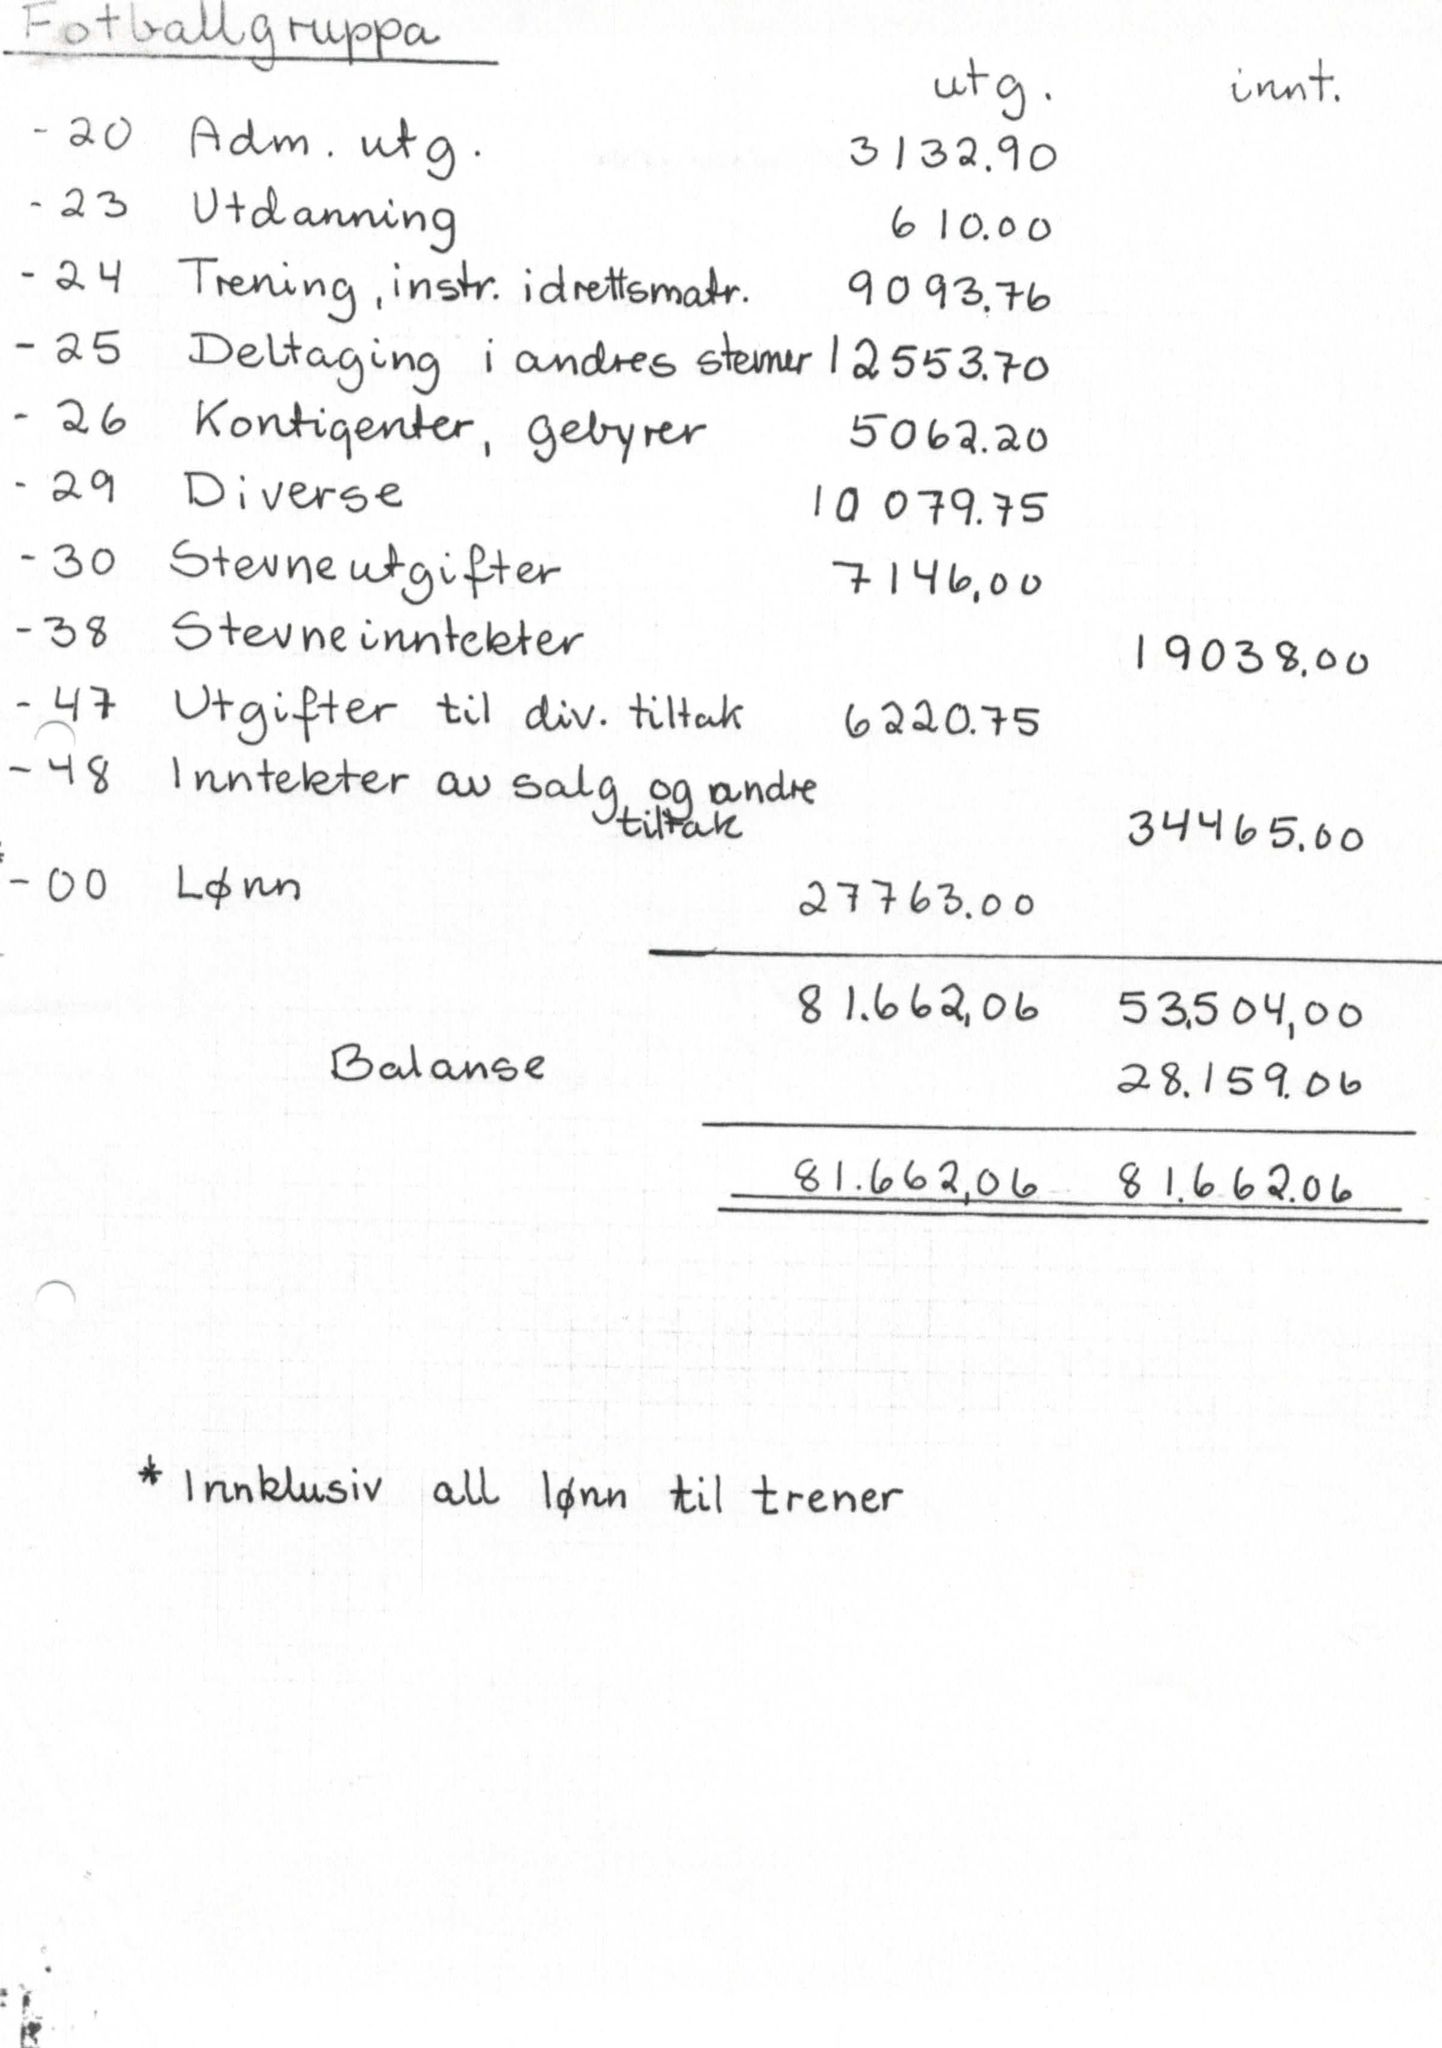 Fotballgruppa
utg. innt.
- 20 Adm. utg. 3132.90
- 23 Utdanning 610.00
- 24 Trening, instr. idrettsmatr. 9093.76
- 25 Deltaging i andres stevner 12553.70
- 26 Kontigenter, gebyrer 5062.20
- 29 Diverse 10 079.75
- 30 Stevneutgifter 7146,00
- 38 Stevneinntekter 19038,00
- 47 Utgifter til div. tiltak 6220.75
- 48 Inntekter av salg og andre
tiltak 34465.00
* - 00 Lønn 27763.00
81.662,06 53.504,00
Balanse 28.159.06
81.662,06 81.662.06
* Innklusiv all lønn til trener